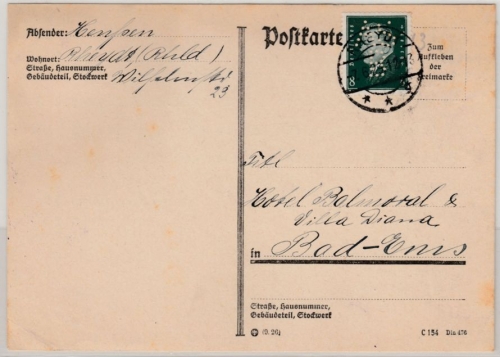 Absender: Henssen
Wohnort: Rheydt (Rhld)
Straße, Hausnummer,
Gebäudeteil, Stockwerk
Wilhelmstr
23
Postkarte
8
Zum
Aufkleben
der
Freimarke
Titl
Hotel Balmoral &
Villa Diana
in Bad-Ems
Straße, Hausnummer,
Gebäudeteil, Stockwerk
(9. 26)
C 154 Din 476